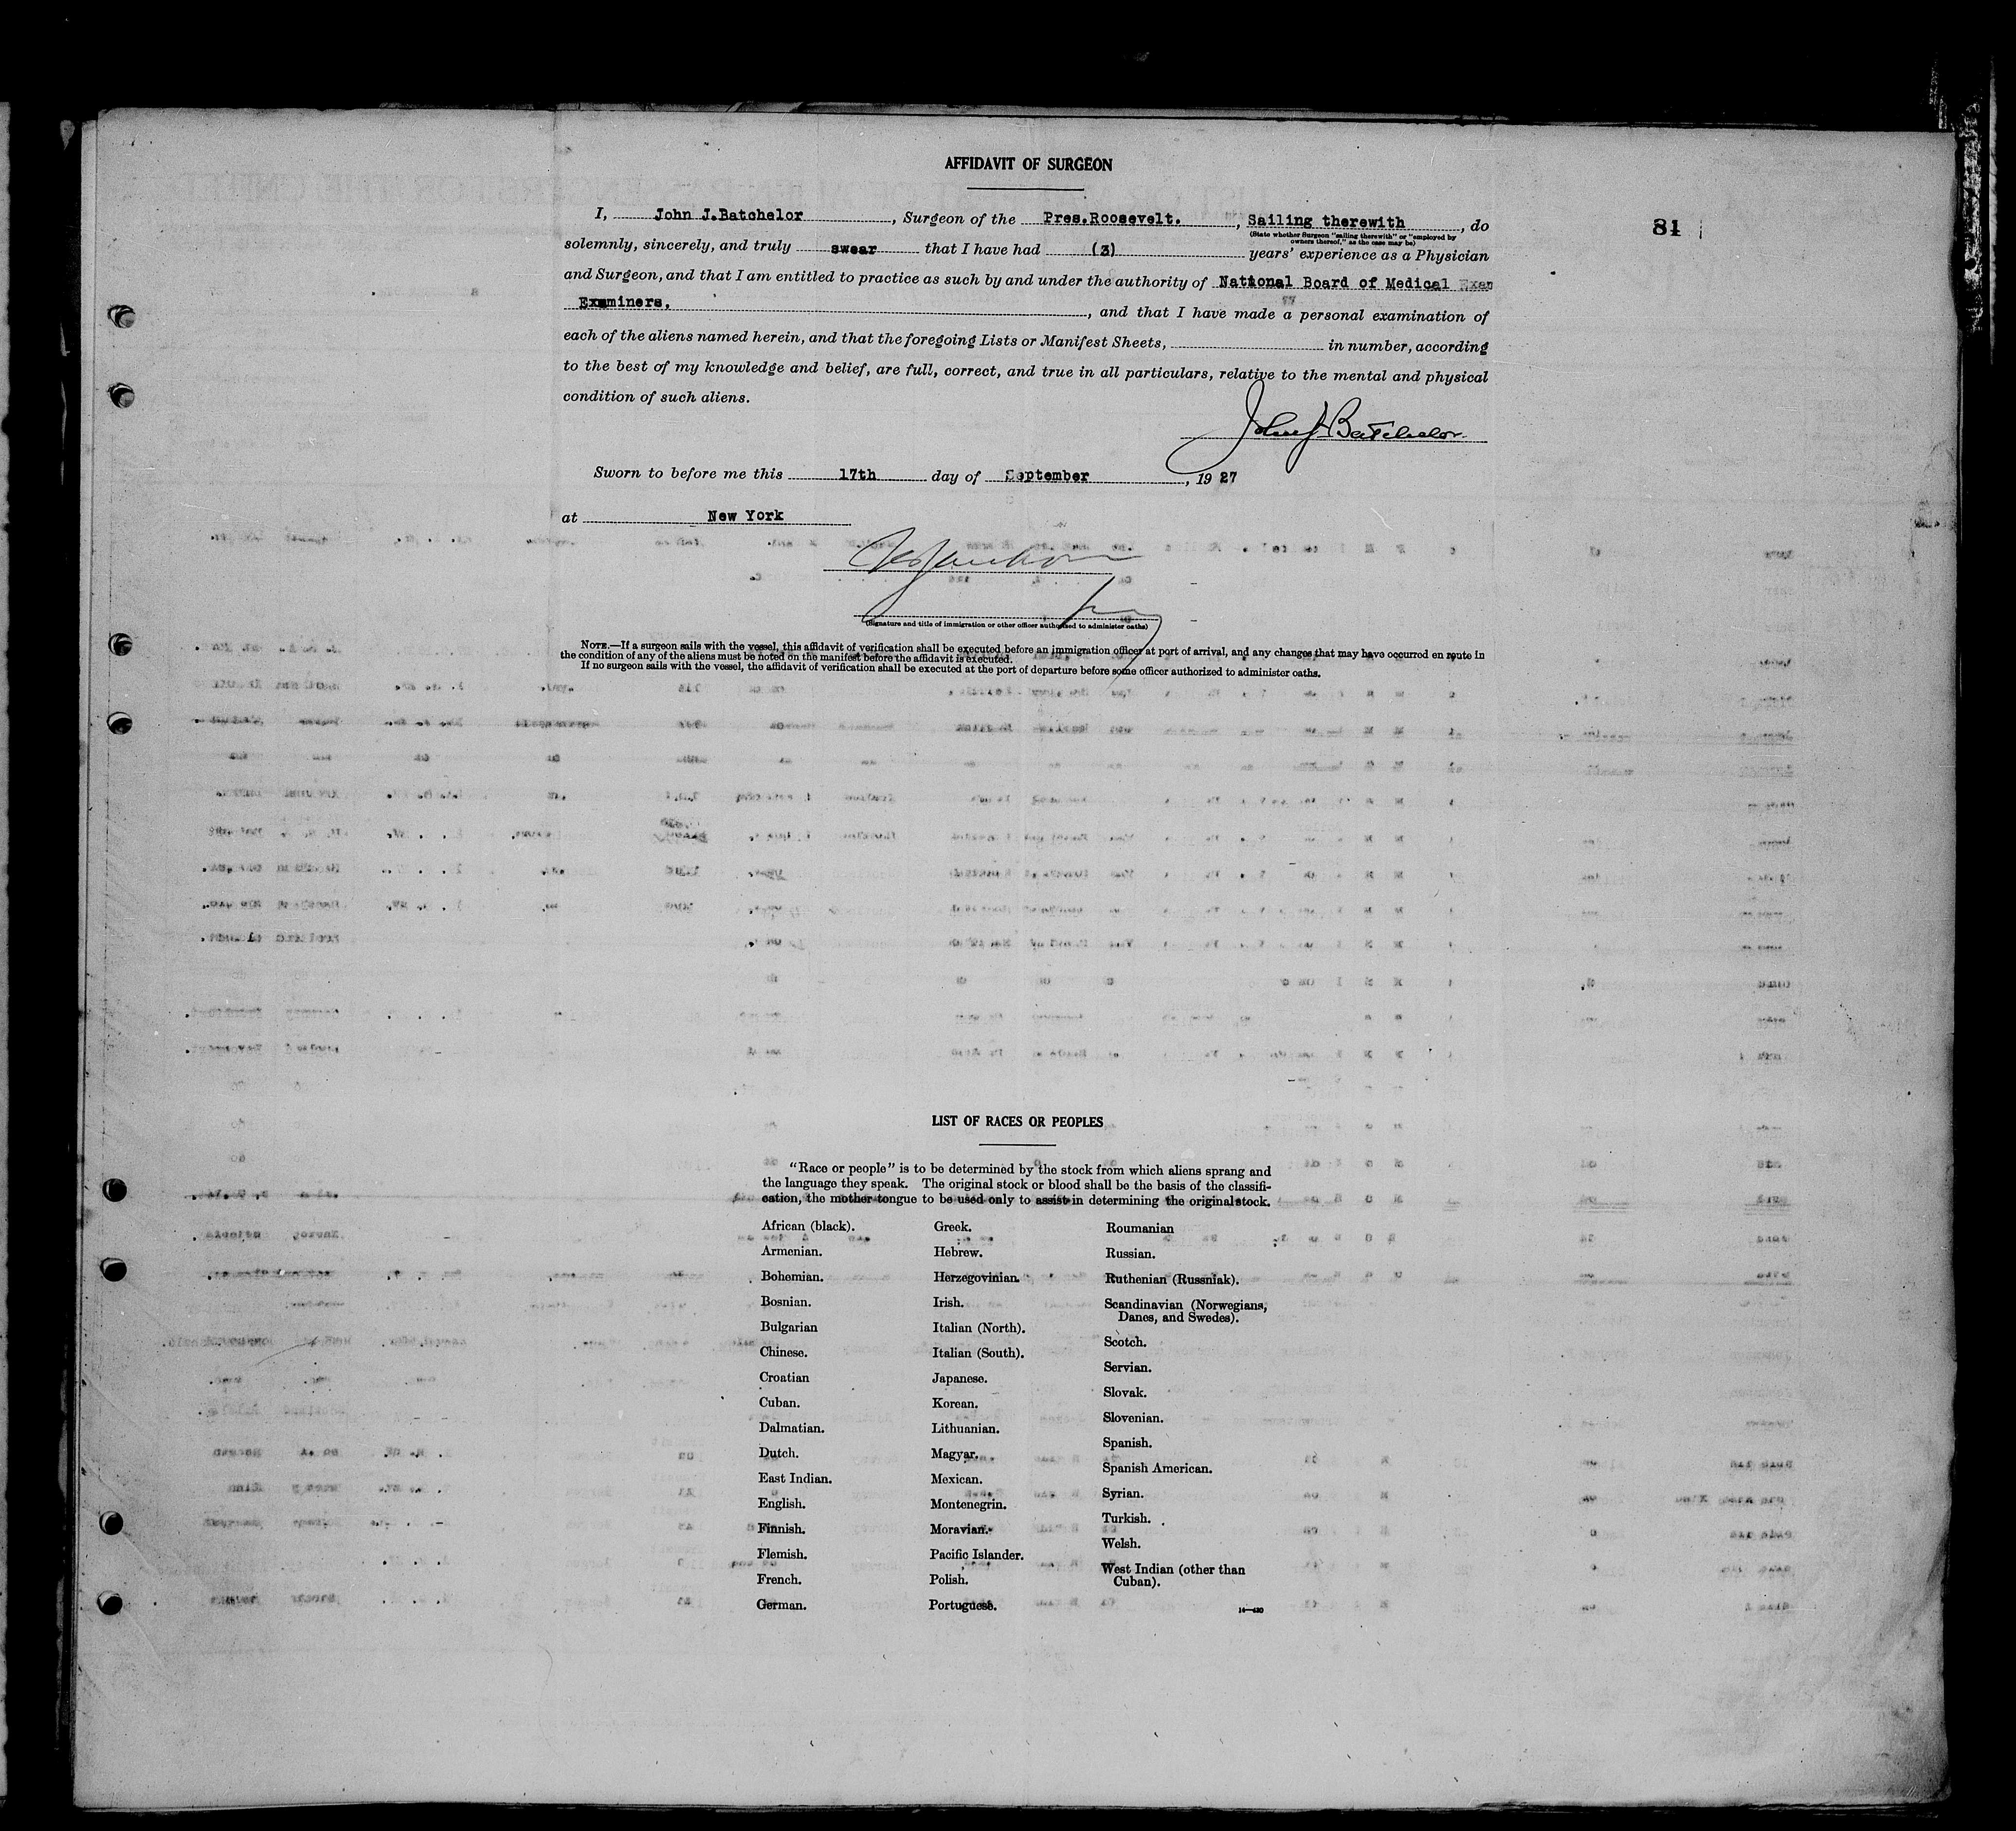 AFFIDAVIT OF SURGEON
81
I, John J.Batchelor, Surgeon of the Pres.Roosevelt., Sailing therewith, do
(State whether Surgeon "sailing therewith" or "employed by
owners thereof," as the case may be)
solemnly, sincerely, and truly swear that I have had (3) years' experience as a Physician
and Surgeon, and that I am entitled to practice as such by and under the authority of National Board of Medical Exam
Examiners., and that I have made a personal examination of
each of the aliens named herein, and that the foregoing Lists or Manifest Sheets, in number, according
to the best of my knowledge and belief, are full, correct, and true in all particulars, relative to the mental and physical
condition of such aliens.
John J Batchelor
Sworn to before me this 17th day of September, 1927
at New York
(Signature and title of immigration or other officer authorized to administer oaths)
NOTE.—If a surgeon sails with the vessel, this affidavit of verification shall be executed before an immigration officer at port of arrival, and any changes that may have occurred en route in
the condition of any of the aliens must be noted on the manifest before the affidavit is executed.
If no surgeon sails with the vessel, the affidavit of verification shall be executed at the port of departure before some officer authorized to administer oaths.
LIST OF RACES OR PEOPLES
"Race or people" is to be determined by the stock from which aliens sprang and
the language they speak. The original stock or blood shall be the basis of the classifi-
cation, the mother tongue to be used only to assist in determining the original stock.
African (black).
Armenian.
Bohemian.
Bosnian.
Bulgarian
Chinese.
Croatian
Cuban.
Dalmatian.
Dutch.
East Indian.
English.
Finnish.
Flemish.
French.
German.
Greek.
Hebrew.
Herzegovinian.
Irish.
Italian (North).
Italian (South).
Japanese.
Korean.
Lithuanian.
Magyar.
Mexican.
Montenegrin.
Moravian.
Pacific Islander.
Polish.
Portuguese.
Roumanian
Russian.
Ruthenian (Russniak).
Scandinavian (Norwegians,
Danes, and Swedes).
Scotch.
Servian.
Slovak.
Slovenian.
Spanish.
Spanish American.
Syrian.
Turkish.
Welsh.
West Indian (other than
Cuban).